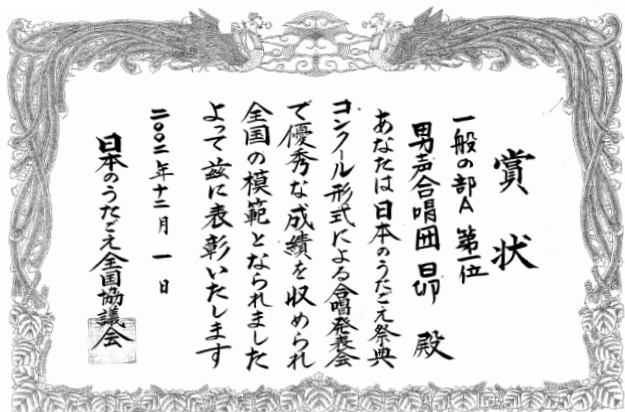 賞状
一般の部A 第一位
男声合唱団 昴 殿
あなたは日本のうたごえ祭典
コンクール形式による合唱発表会
で優秀な成績を収められ
全国の模範となられました
よって茲に表彰いたします
二〇〇二年十二月一日
日本のうたごえ全国協議会